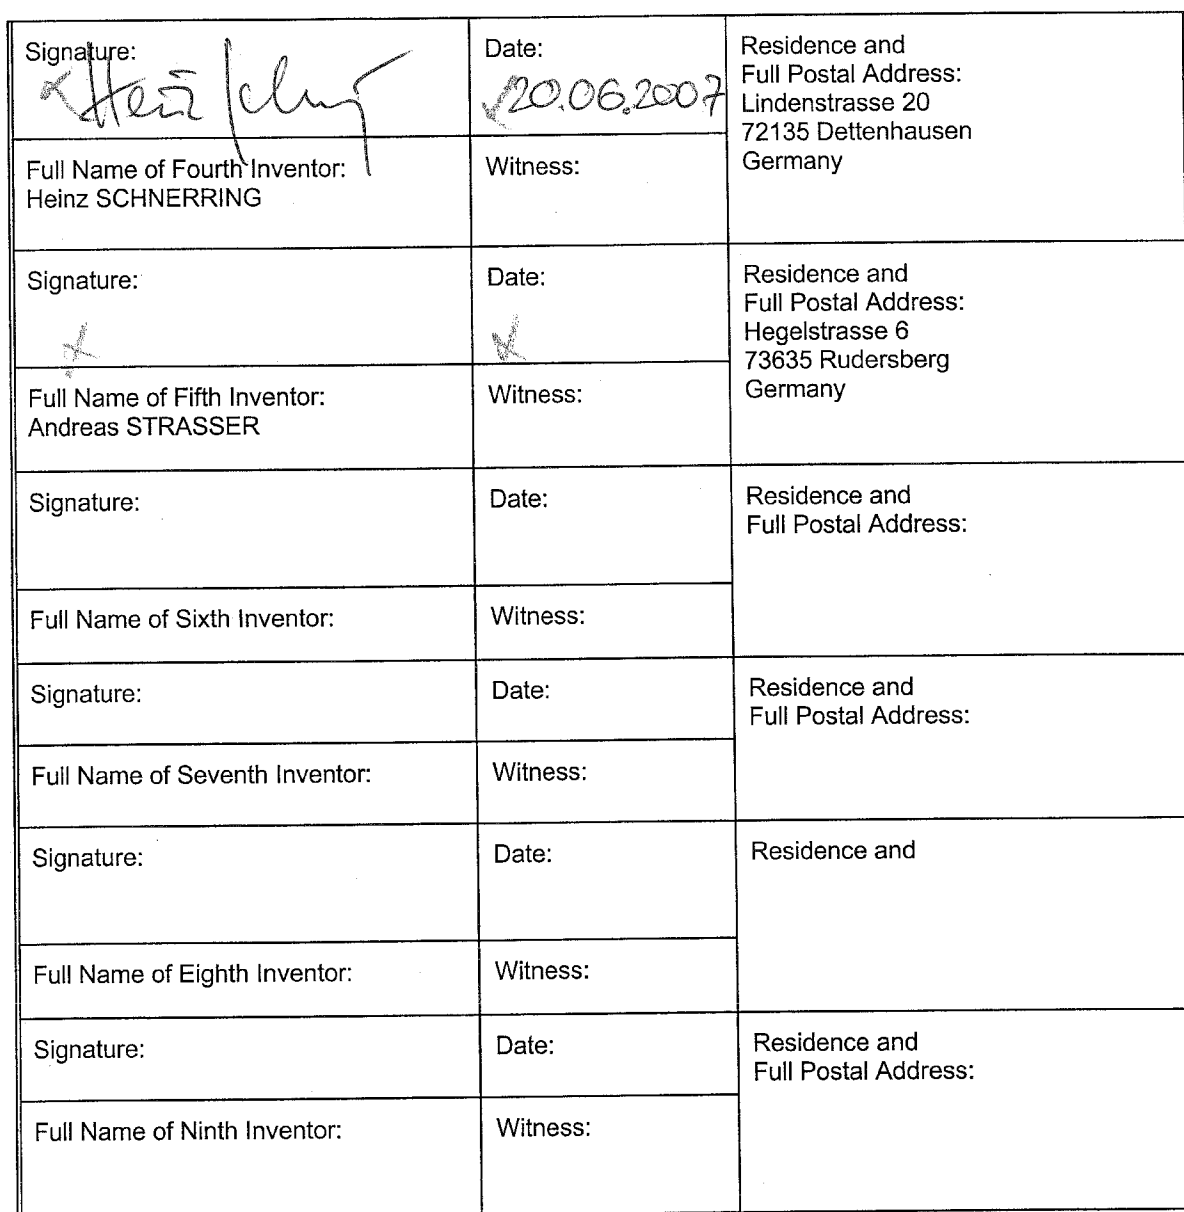 Signature:
Date:
20.06.2007
Residence and
Full Postal Address:
Lindenstrasse 20
72135 Dettenhausen
Germany
Full Name of Fourth Inventor:
Heinz SCHNERRING
Witness:
Signature:
Date:
Residence and
Full Postal Address:
Hegelstrasse 6
73635 Rudersberg
Germany
Full Name of Fifth Inventor:
Andreas STRASSER
Witness:
Signature:
Date:
Residence and
Full Postal Address:
Full Name of Sixth Inventor:
Witness:
Signature:
Date:
Residence and
Full Postal Address:
Full Name of Seventh Inventor:
Witness:
Signature:
Date:
Residence and
Full Name of Eighth Inventor:
Witness:
Signature:
Date:
Residence and
Full Postal Address:
Full Name of Ninth Inventor:
Witness: